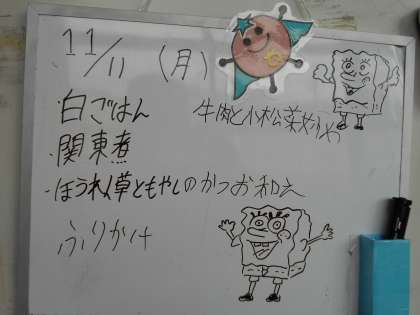 11/11 (月)
・白ごはん
牛肉と小松菜
・関東煮
・ほうれん草ともやしのかつお和え
ふりかけ